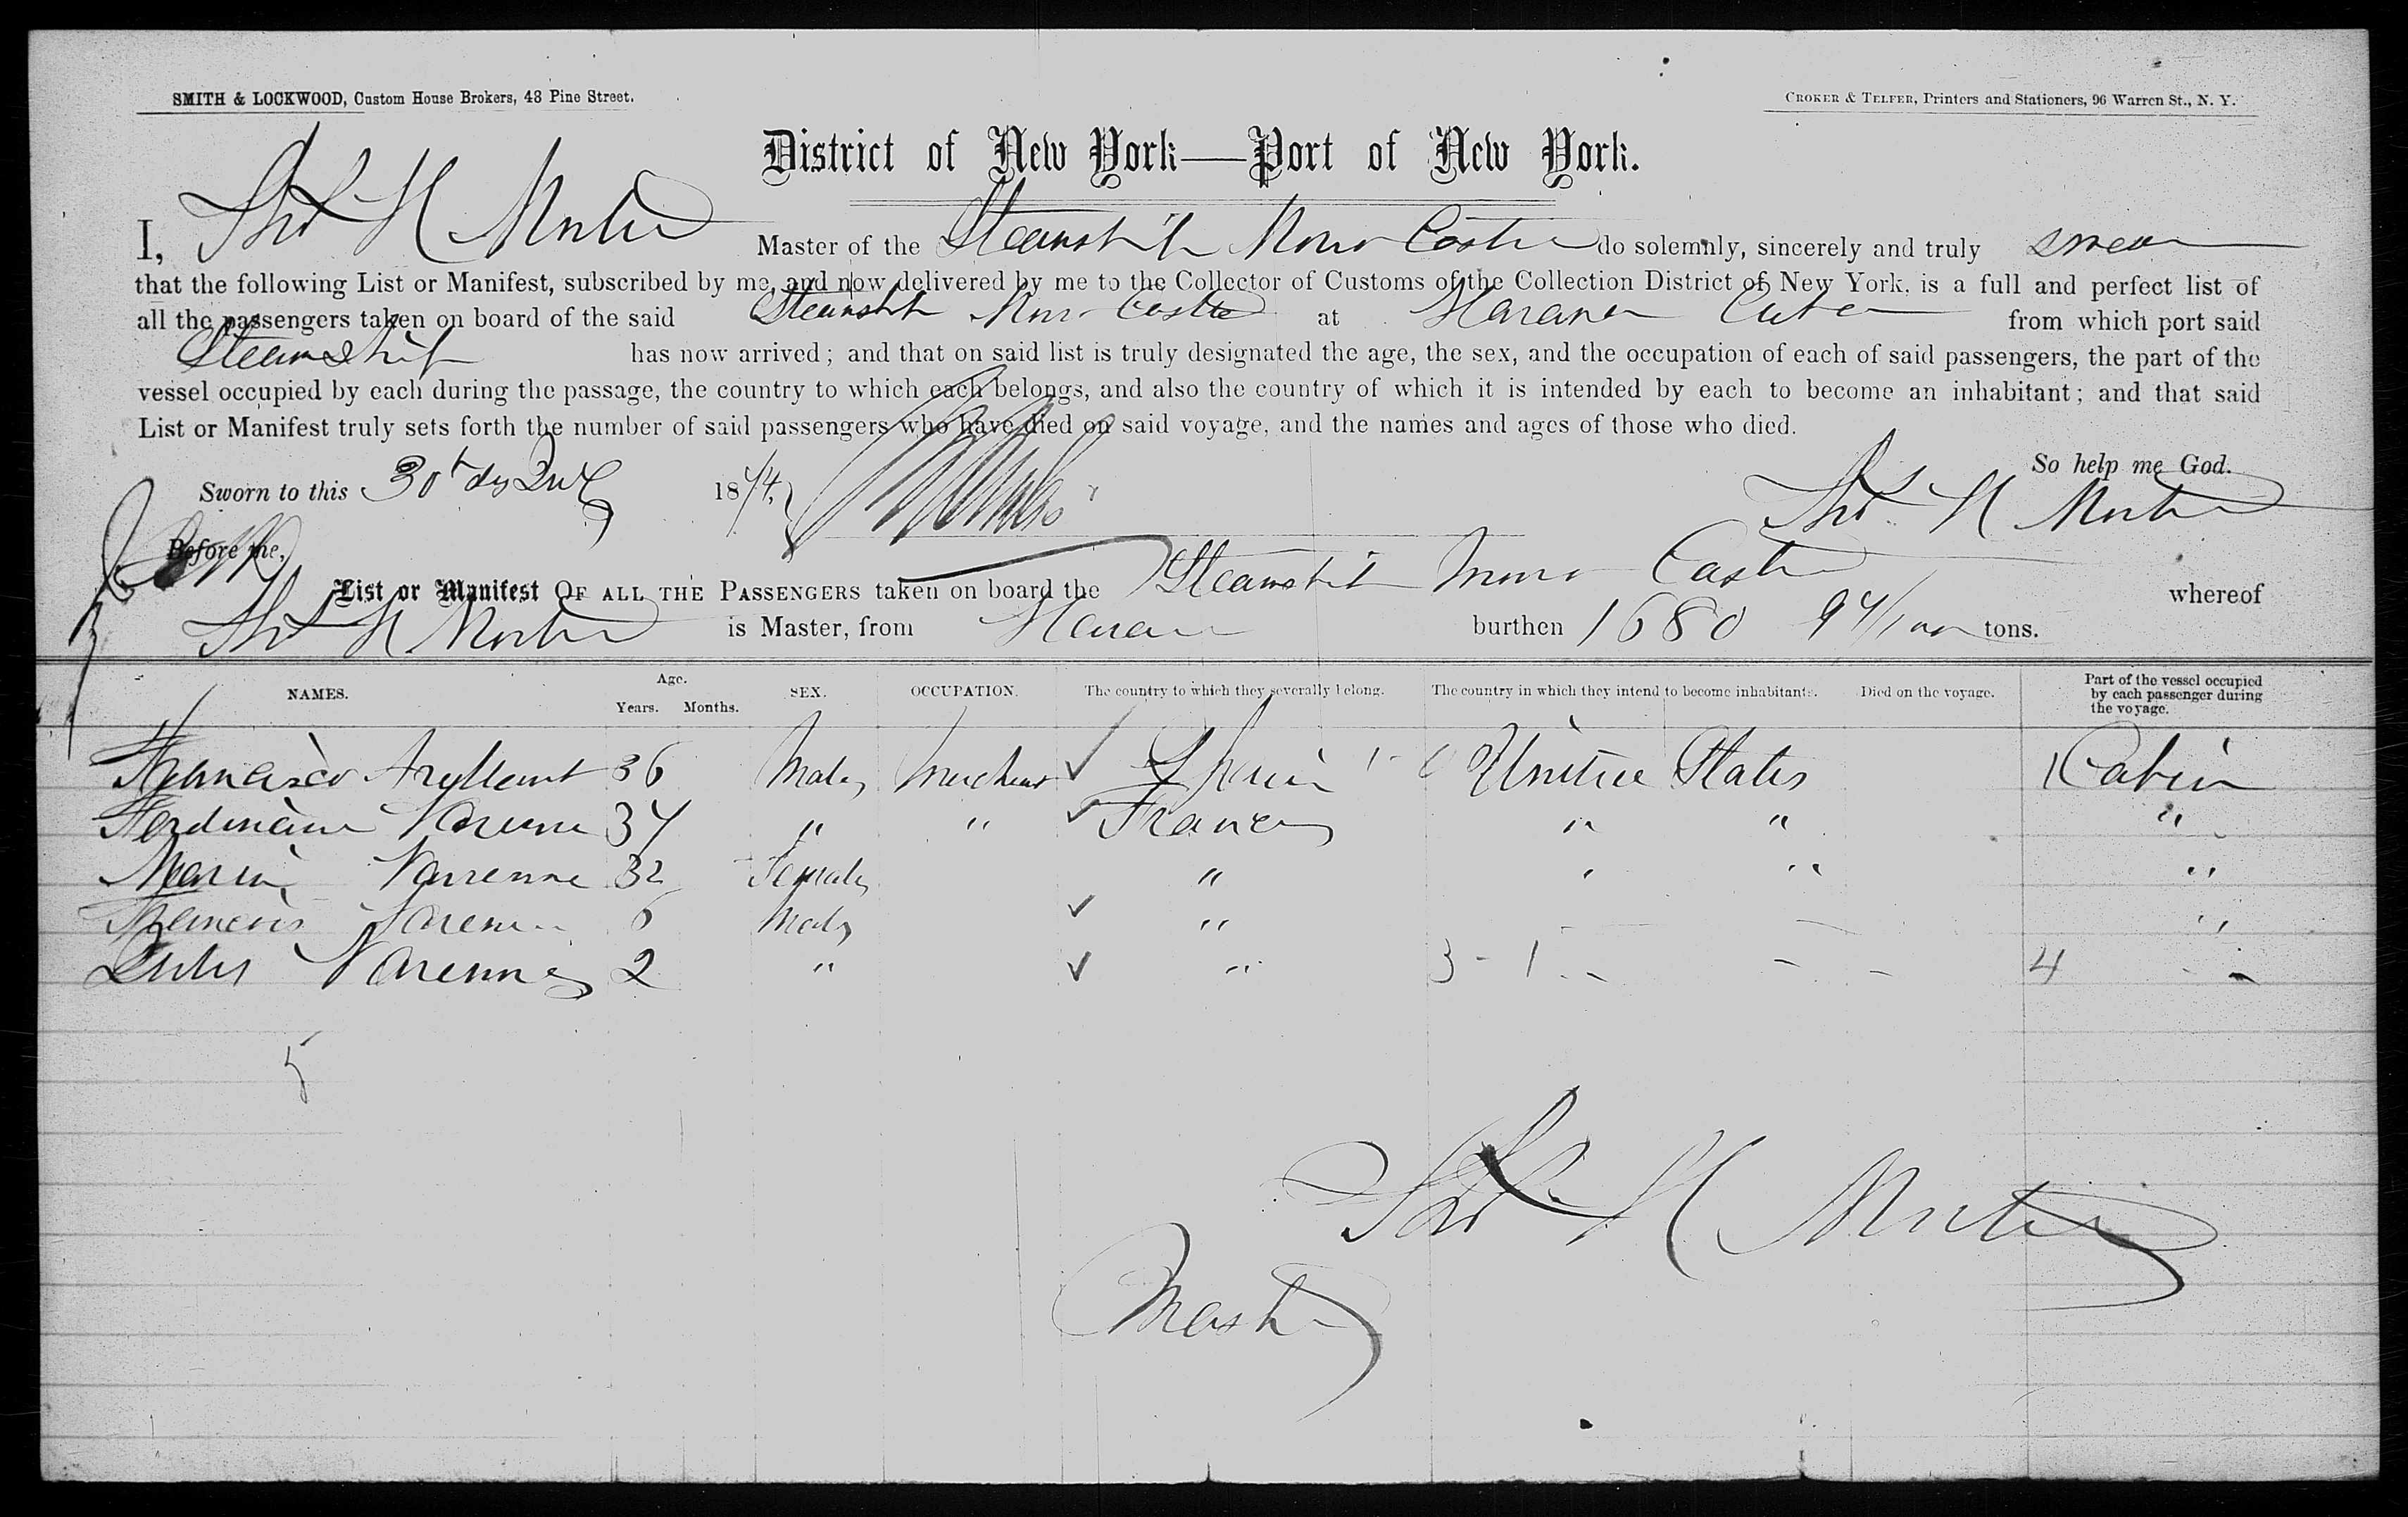 SMITH & LOCKWOOD, Custom House Brokers, 43 Pine Street.
CROKER & TELFER, Printers and Stationers, 96 Warren St., N. Y.
District of New York—Port of New York.
I, Thos H Master of the Steamship Morro Castle do solemnly, sincerely and truly swear
that the following List or Manifest, subscribed by me, and now delivered by me to the Collector of Customs of the Collection District of New York, is a full and perfect list of
all the passengers taken on board of the said Steamship Morro Castle at Havana Cuba from which port said
Steamship has now arrived; and that on said list is truly designated the age, the sex, and the occupation of each of said passengers, the part of the
vessel occupied by each during the passage, the country to which each belongs, and also the country of which it is intended by each to become an inhabitant; and that said
List or Manifest truly sets forth the number of said passengers who have died on said voyage, and the names and ages of those who died.
So help me God.
Sworn to this 30th day 1874
Thos H
Before me,
List or Manifest OF ALL THE PASSENGERS taken on board the Steamship Morro Castle whereof
Thos H is Master, from Havana burthen 1680 94/100 tons.
NAMES. Age. Years. Months. SEX. OCCUPATION. The country to which they severally belong. The country in which they intend to become inhabitants. Died on the voyage. Part of the vessel occupied by each passenger during the voyage.
Francisco 36 Male Merchant ✓ Spain 1 - United States 1 Cabin
Ferdinand Varenne 34 " " ✓ France " " "
Maria Varenne 32 Female " " " "
Francois Varenne 6 Male ✓ " "
Jules Varenne 2 " ✓ " 3 - 1 4
5
Thos H
Master